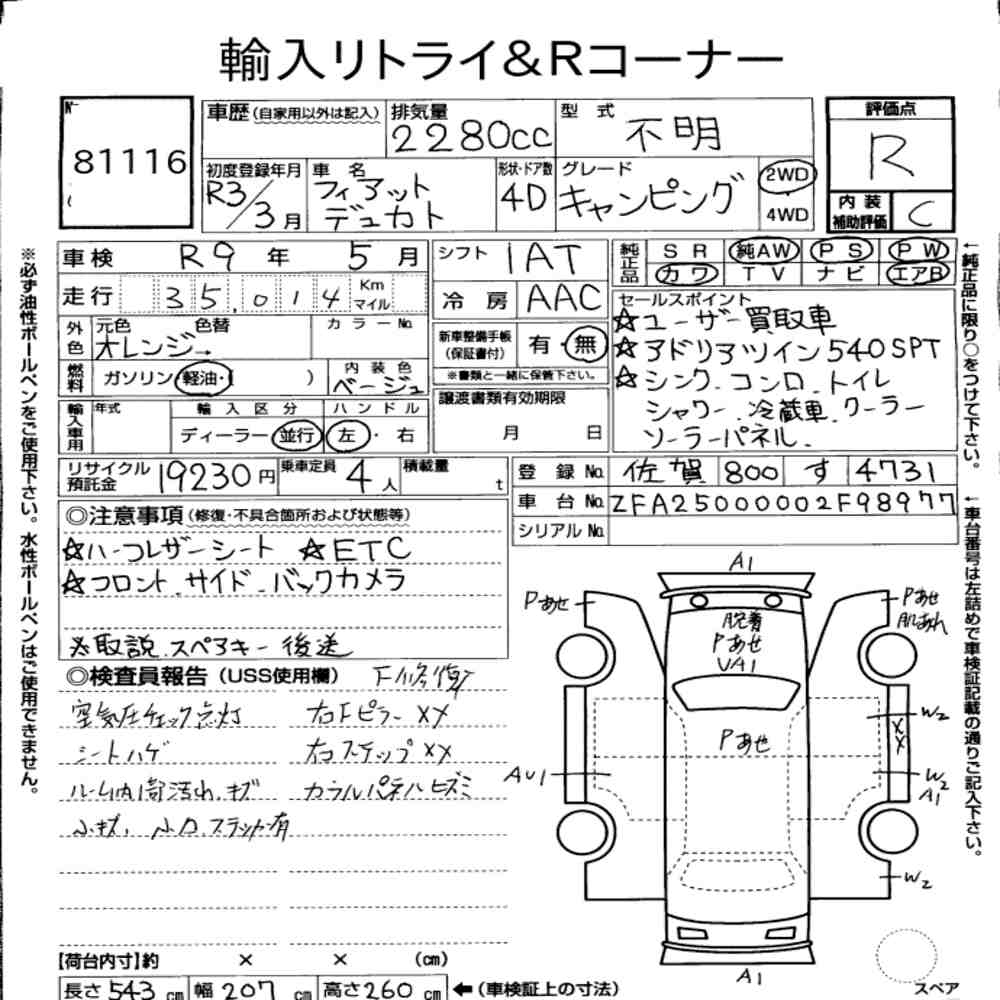 輸入リトライ&Rコーナー
No
81116
車歴(自家用以外は記入)
排気量
2280cc
型式
不明
評価点
R
初度登録年月
R3/3月
車名
フィアット
デュカト
形状・ドア数
4D
グレード
キャンピング
2WD
・
4WD
内装
補助評価
C
車検 R9年 5月
シフト 1AT
純正品
SR 純AW PS PW
カワ TV ナビ エアB
走行 35,014 Km マイル
冷房 AAC
セールスポイント
☆ユーザー買取車
☆アドリアツイン540SPT
☆シンク.コンロ.トイレ
シャワー.冷蔵庫.クーラー
ソーラーパネル.
外色
元色 色替
オレンジ→
カラーNo.
新車整備手帳
(保証書付)
有・無
※書類と一緒に保管下さい。
燃料
ガソリン・軽油・( )
内装色
ベージュ
譲渡書類有効期限
月 日
輸入車用
年式
輸入区分
ディーラー・並行
ハンドル
左・右
リサイクル
預託金
19230円
乗車定員
4人
積載量
t
登録No. 佐賀 800 す 4731
車台No. ZFA25000002F98977
シリアルNo.
◎注意事項(修復・不具合箇所および状態等)
☆ハーフレザーシート ☆ETC
☆フロント.サイド.バックカメラ
※取説.スペアキー後送
◎検査員報告(USS使用欄)
下修復
空気圧チェック点灯 右Fピラーxx
シートハゲ 右ステップxx
ルーム内1部汚れ.キズ
小キズ,小凹.スラッカ有
A1
Pあせ
Pあせ
肌あれ
脱着
Pあせ
UA1
Pあせ
W2
xx
AU1
W2
A1
W2
A1
スペア
【荷台内寸】約 × × (cm)
長さ543cm 幅207cm 高さ260cm ←(車検証上の寸法)
※必ず油性ボールペンをご使用下さい。水性ボールペンはご使用できません。
←純正品に限り○をつけて下さい。
←車台番号は左詰めで車検証記載の通りご記入下さい。